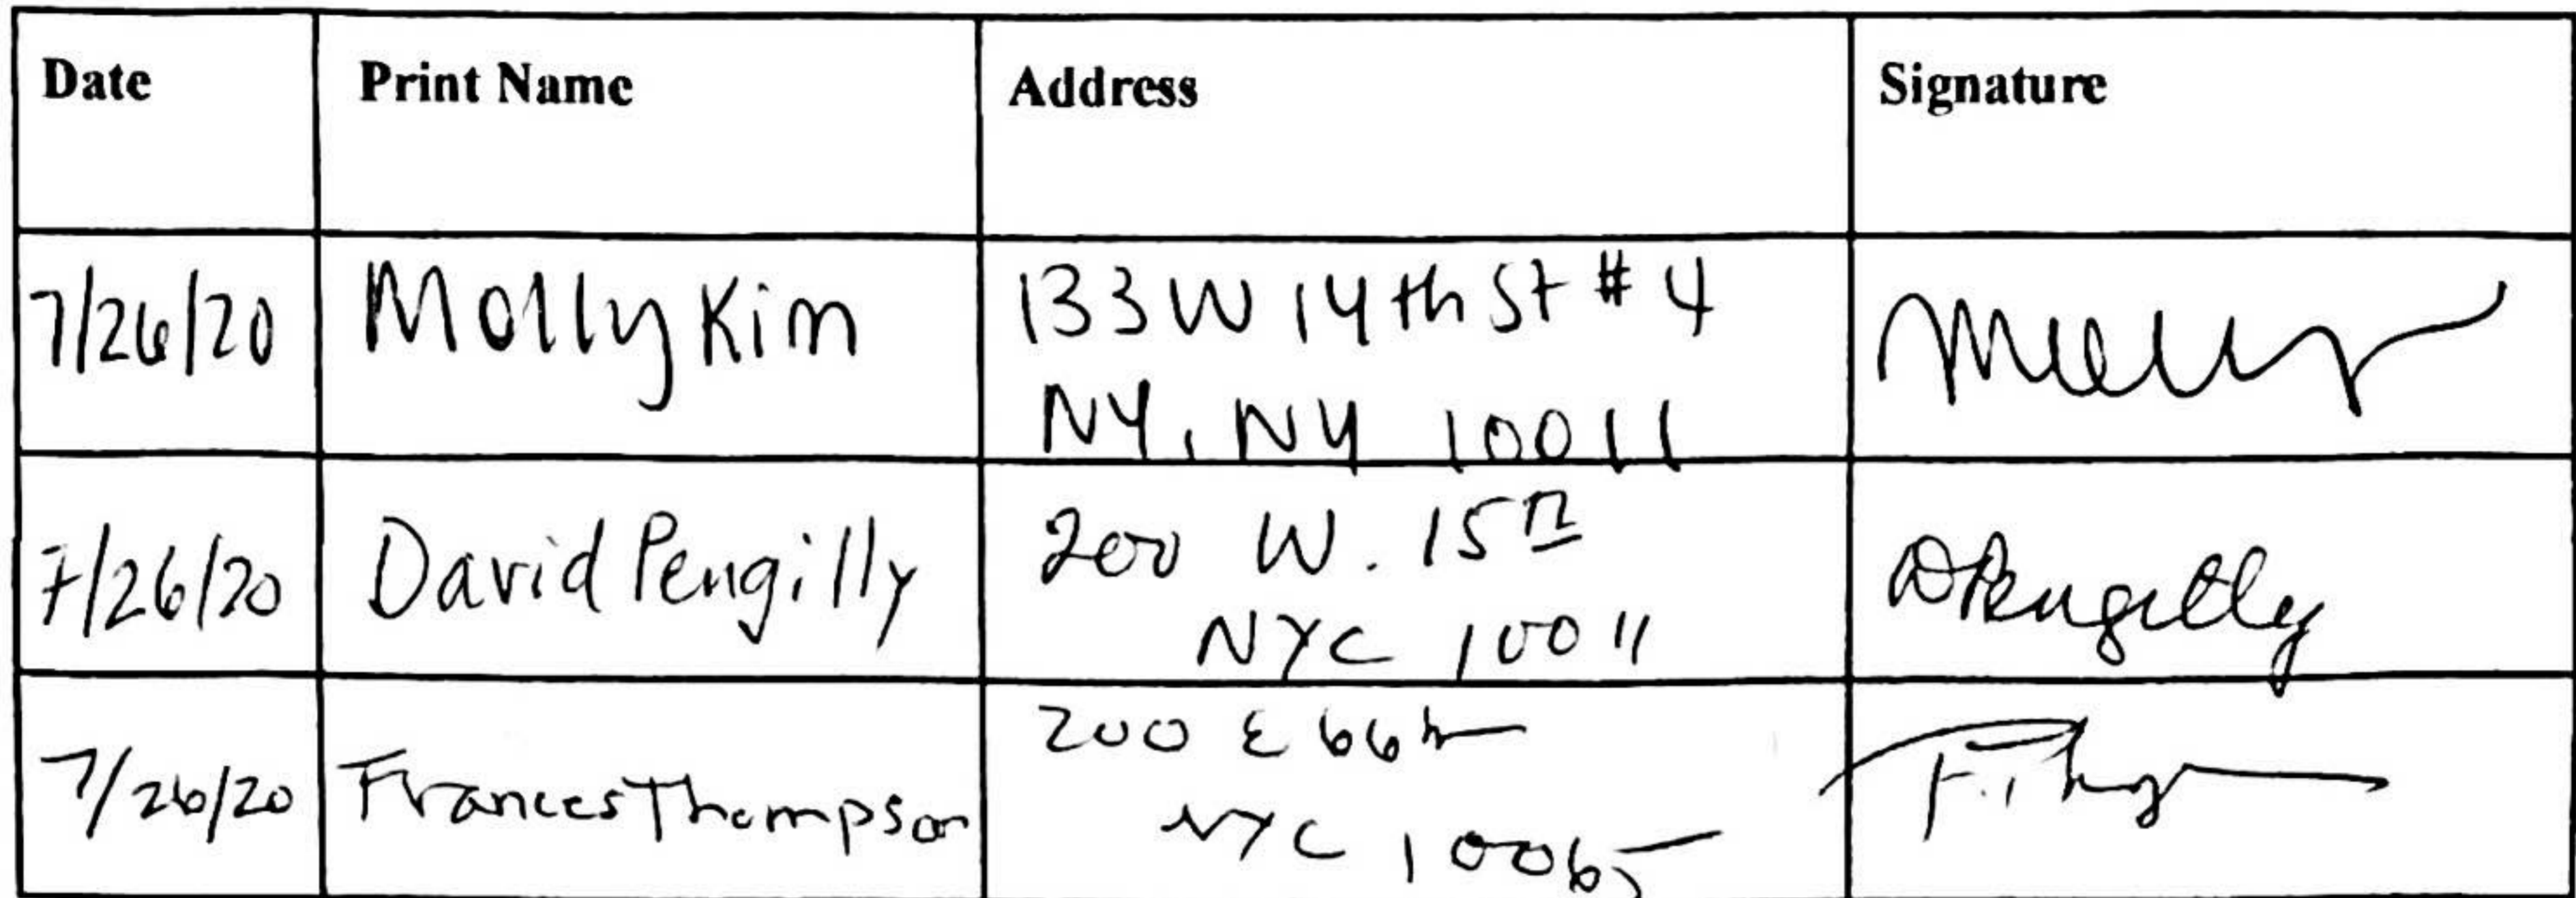 Date Print Name Address Signature
7/26/20 Molly Kim 133 W 14th St # 4
NY, NY 10011
7/26/20 David Pengilly 200 W. 15th DPengilly
NYC 10011
7/26/20 Frances Thompson 200 E 66th
NYC 10065